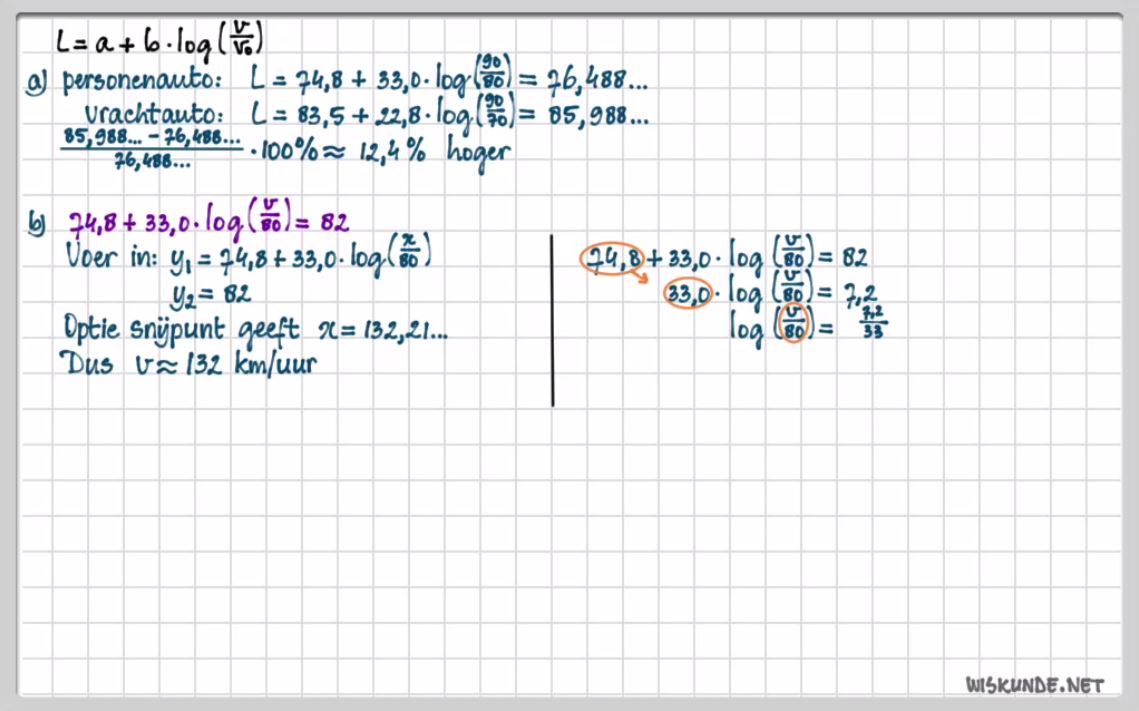 L = a + b · log(v/v₀)
a) personenauto: L = 74,8 + 33,0 · log(90/80) = 76,488...
vrachtauto: L = 83,5 + 22,8 · log(90/70) = 85,988...
(85,988... - 76,488...)/76,488... · 100% ≈ 12,4% hoger
b) 74,8 + 33,0 · log(v/80) = 82
Voer in: y₁ = 74,8 + 33,0 · log(x/80)
y₂ = 82
Optie snijpunt geeft x = 132,21...
Dus v ≈ 132 km/uur
74,8 + 33,0 · log(v/80) = 82
33,0 · log(v/80) = 7,2
log(v/80) = 7,2/33
WISKUNDE.NET